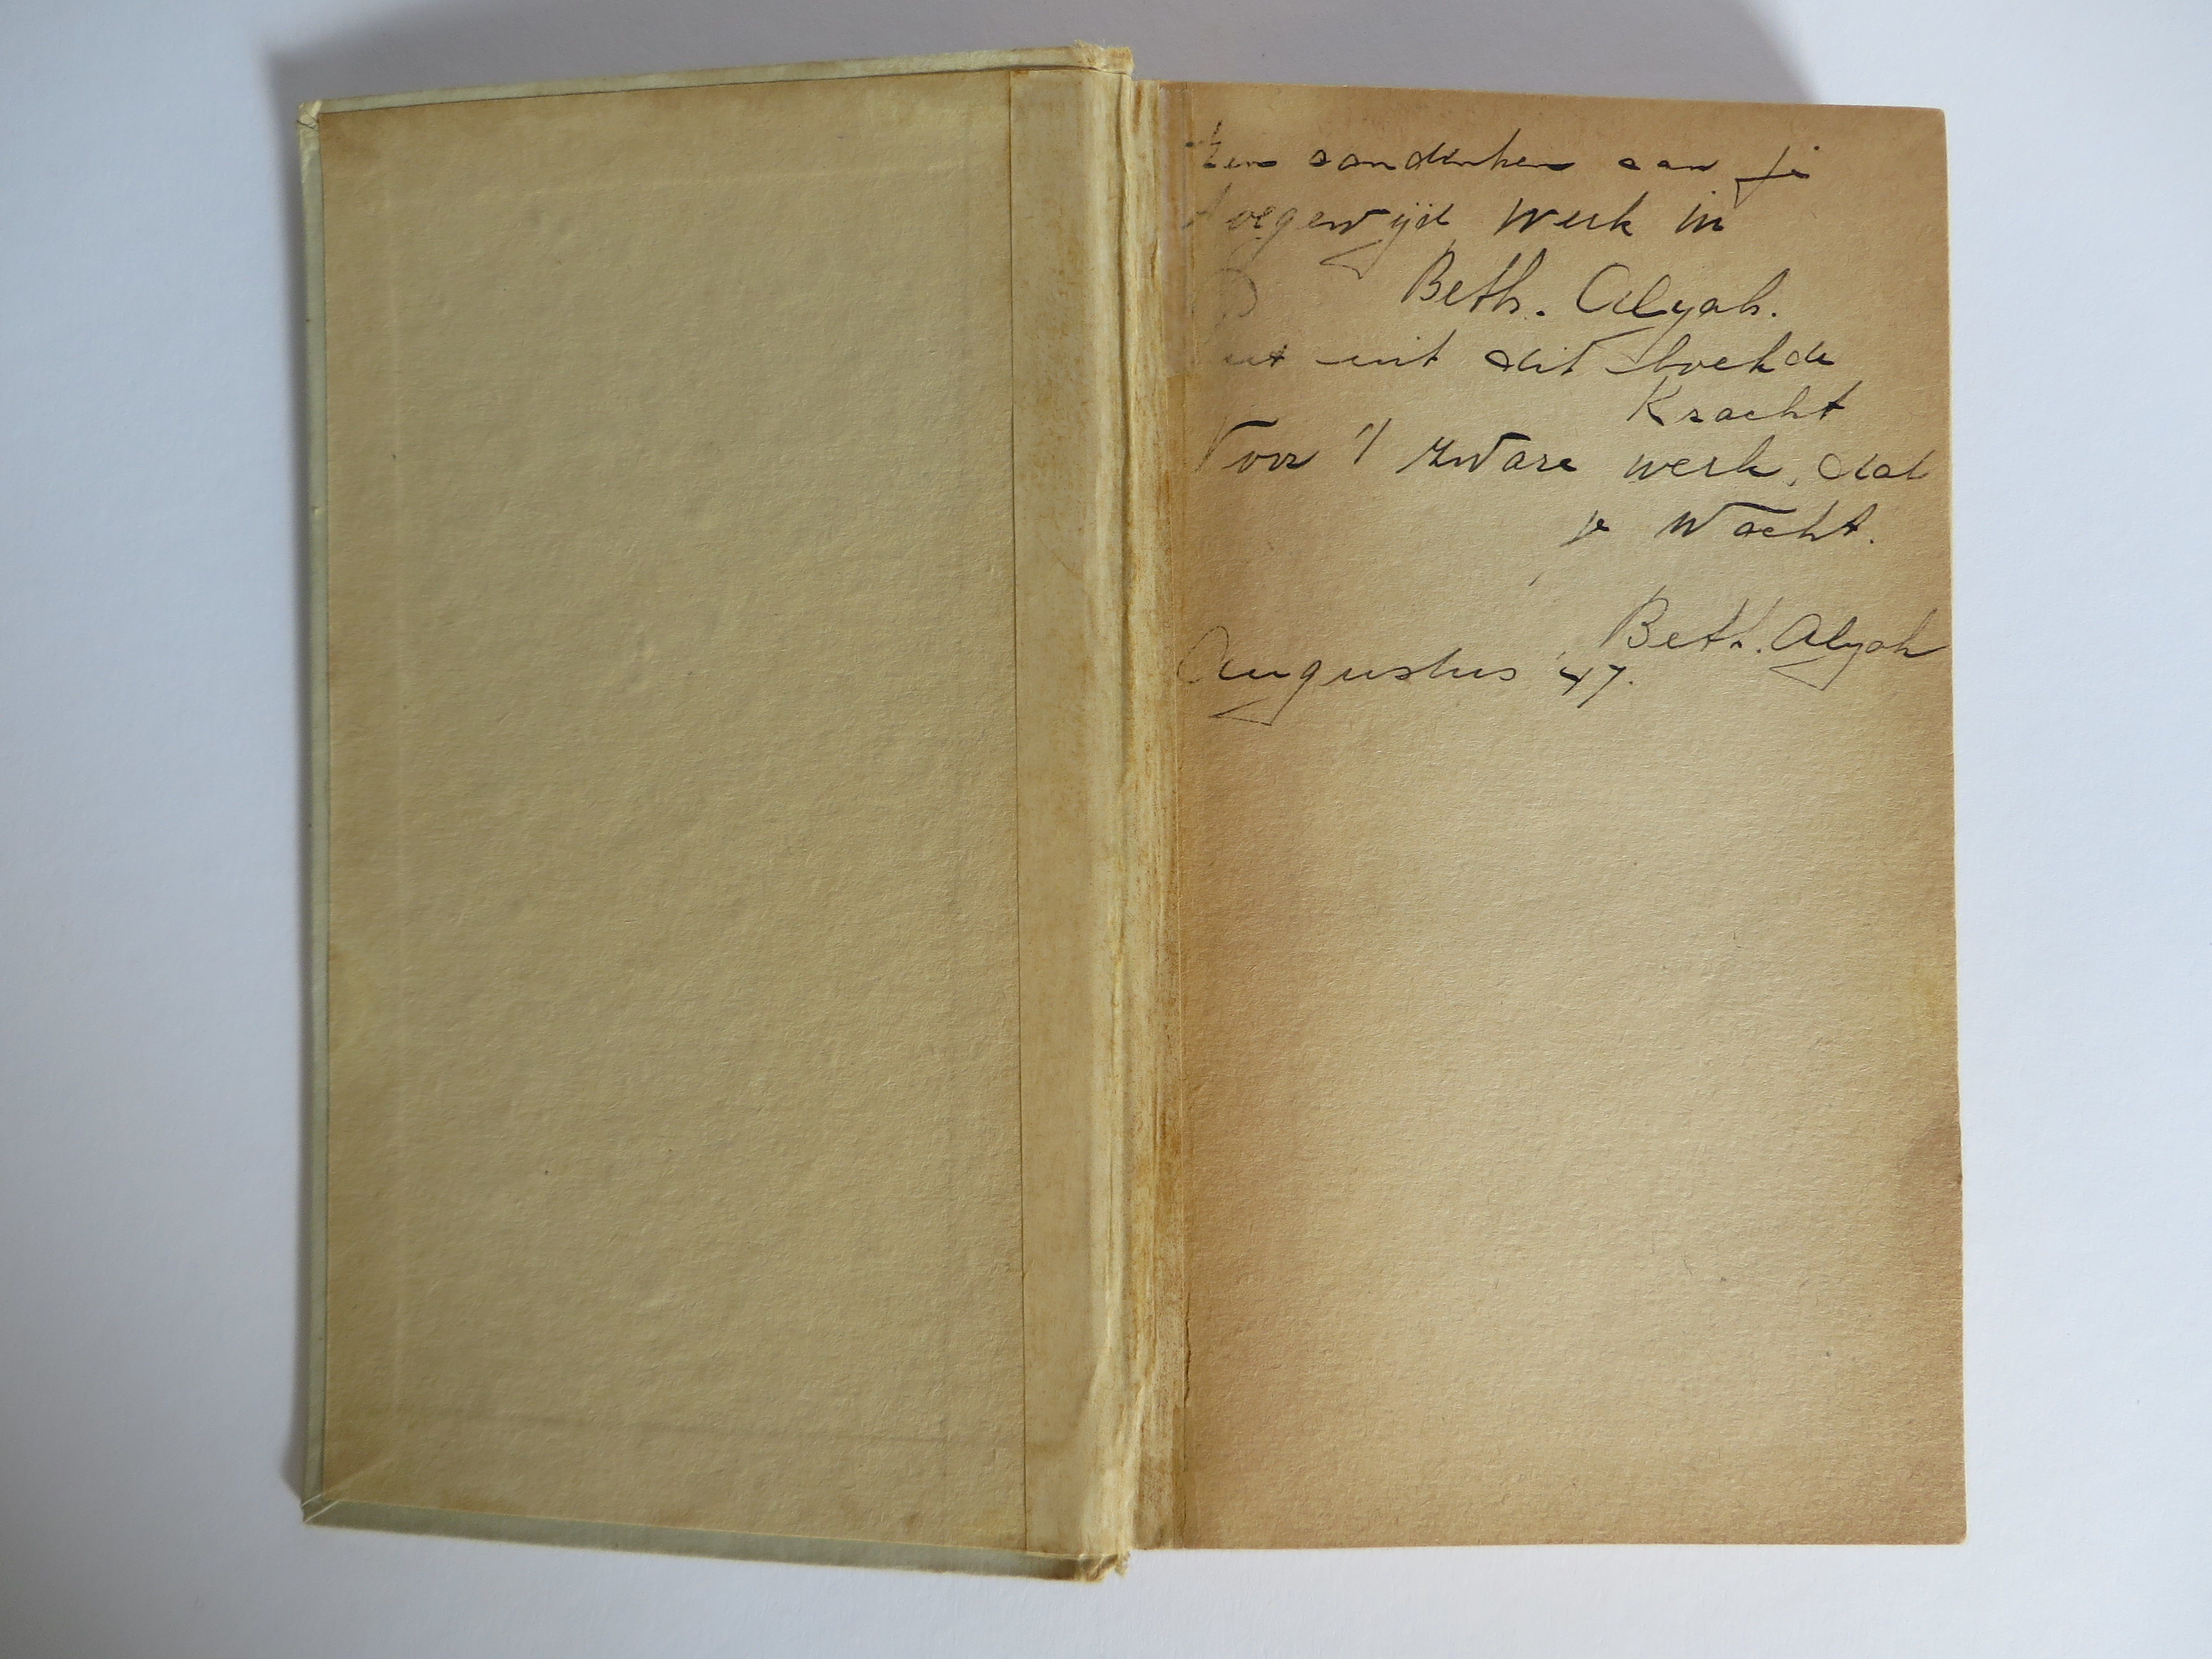 Een aandenken aan je
toegewijd werk in
Beth. Alyah.
Put uit dit boek de
Kracht
Voor 't zware werk, dat
je wacht.
Beth. Alyah
Augustus '47.